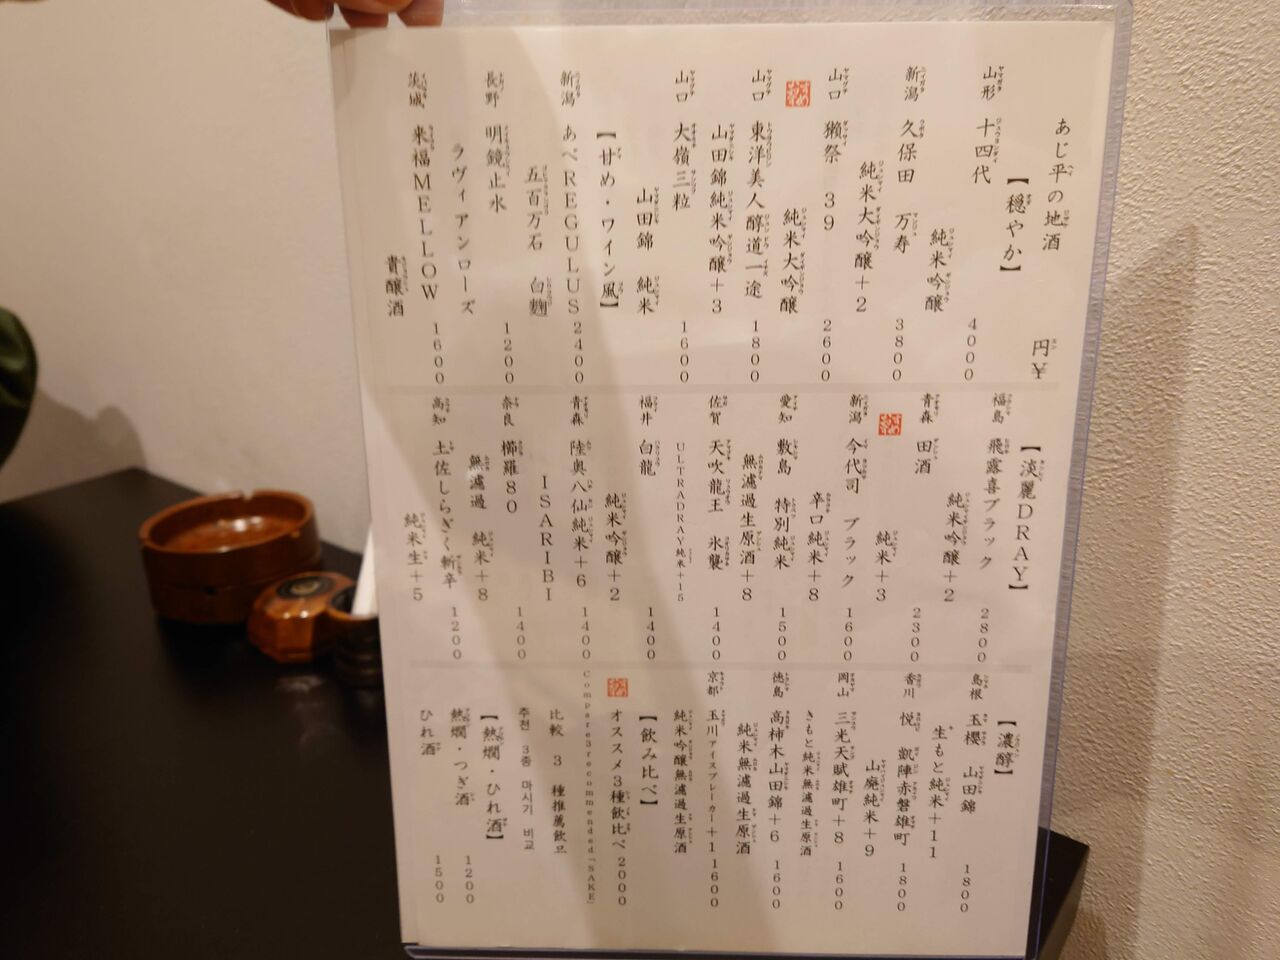 あじ平の地酒 円¥
【穏やか】
山形 十四代 4000
純米吟醸
新潟 久保田 万寿 3800
純米大吟醸+2
山口 獺祭 39 2600
純米大吟醸
山口 東洋美人醇道一途 1800
山田錦純米吟醸+3
山口 大嶺三粒 1600
山田錦 純米
【甘め・ワイン風】
新潟 あべREGULUS 2400
五百万石 白麹
長野 明鏡止水 1200
ラヴィアンローズ
茨城 来福MELLOW 1600
貴醸酒
【淡麗DRAY】
福島 飛露喜ブラック 2800
純米吟醸+2
青森 田酒 2300
純米+3
新潟 今代司 ブラック 1600
辛口純米+8
愛知 敷島 特別純米 1500
無濾過生原酒+8
佐賀 天吹龍王 氷襲 1400
ULTRADRAY純米+15
福井 白龍 1400
純米吟醸+2
青森 陸奥八仙純米+6 1400
ISARIBI
奈良 櫛羅80 1400
無濾過 純米+8
高知 土佐しらぎく斬辛 1200
純米生+5
【濃醇】
島根 玉櫻 山田錦 1800
生もと純米+11
香川 悦 凱陣赤磐雄町 1800
山廃純米+9
岡山 三光天賦雄町+8 1600
きもと純米無濾過生原酒
徳島 高柿木山田錦+6 1600
純米無濾過生原酒
京都 玉川アイスブレーカー+1 1600
純米吟醸無濾過生原酒
【飲み比べ】
オススメ3種飲比べ 2000
Compare3recommended「SAKE」
比較 3 種推薦飲品
추천 3종 마시기 비교
【熱燗・ひれ酒】
熱燗・つぎ酒 1200
ひれ酒 1500